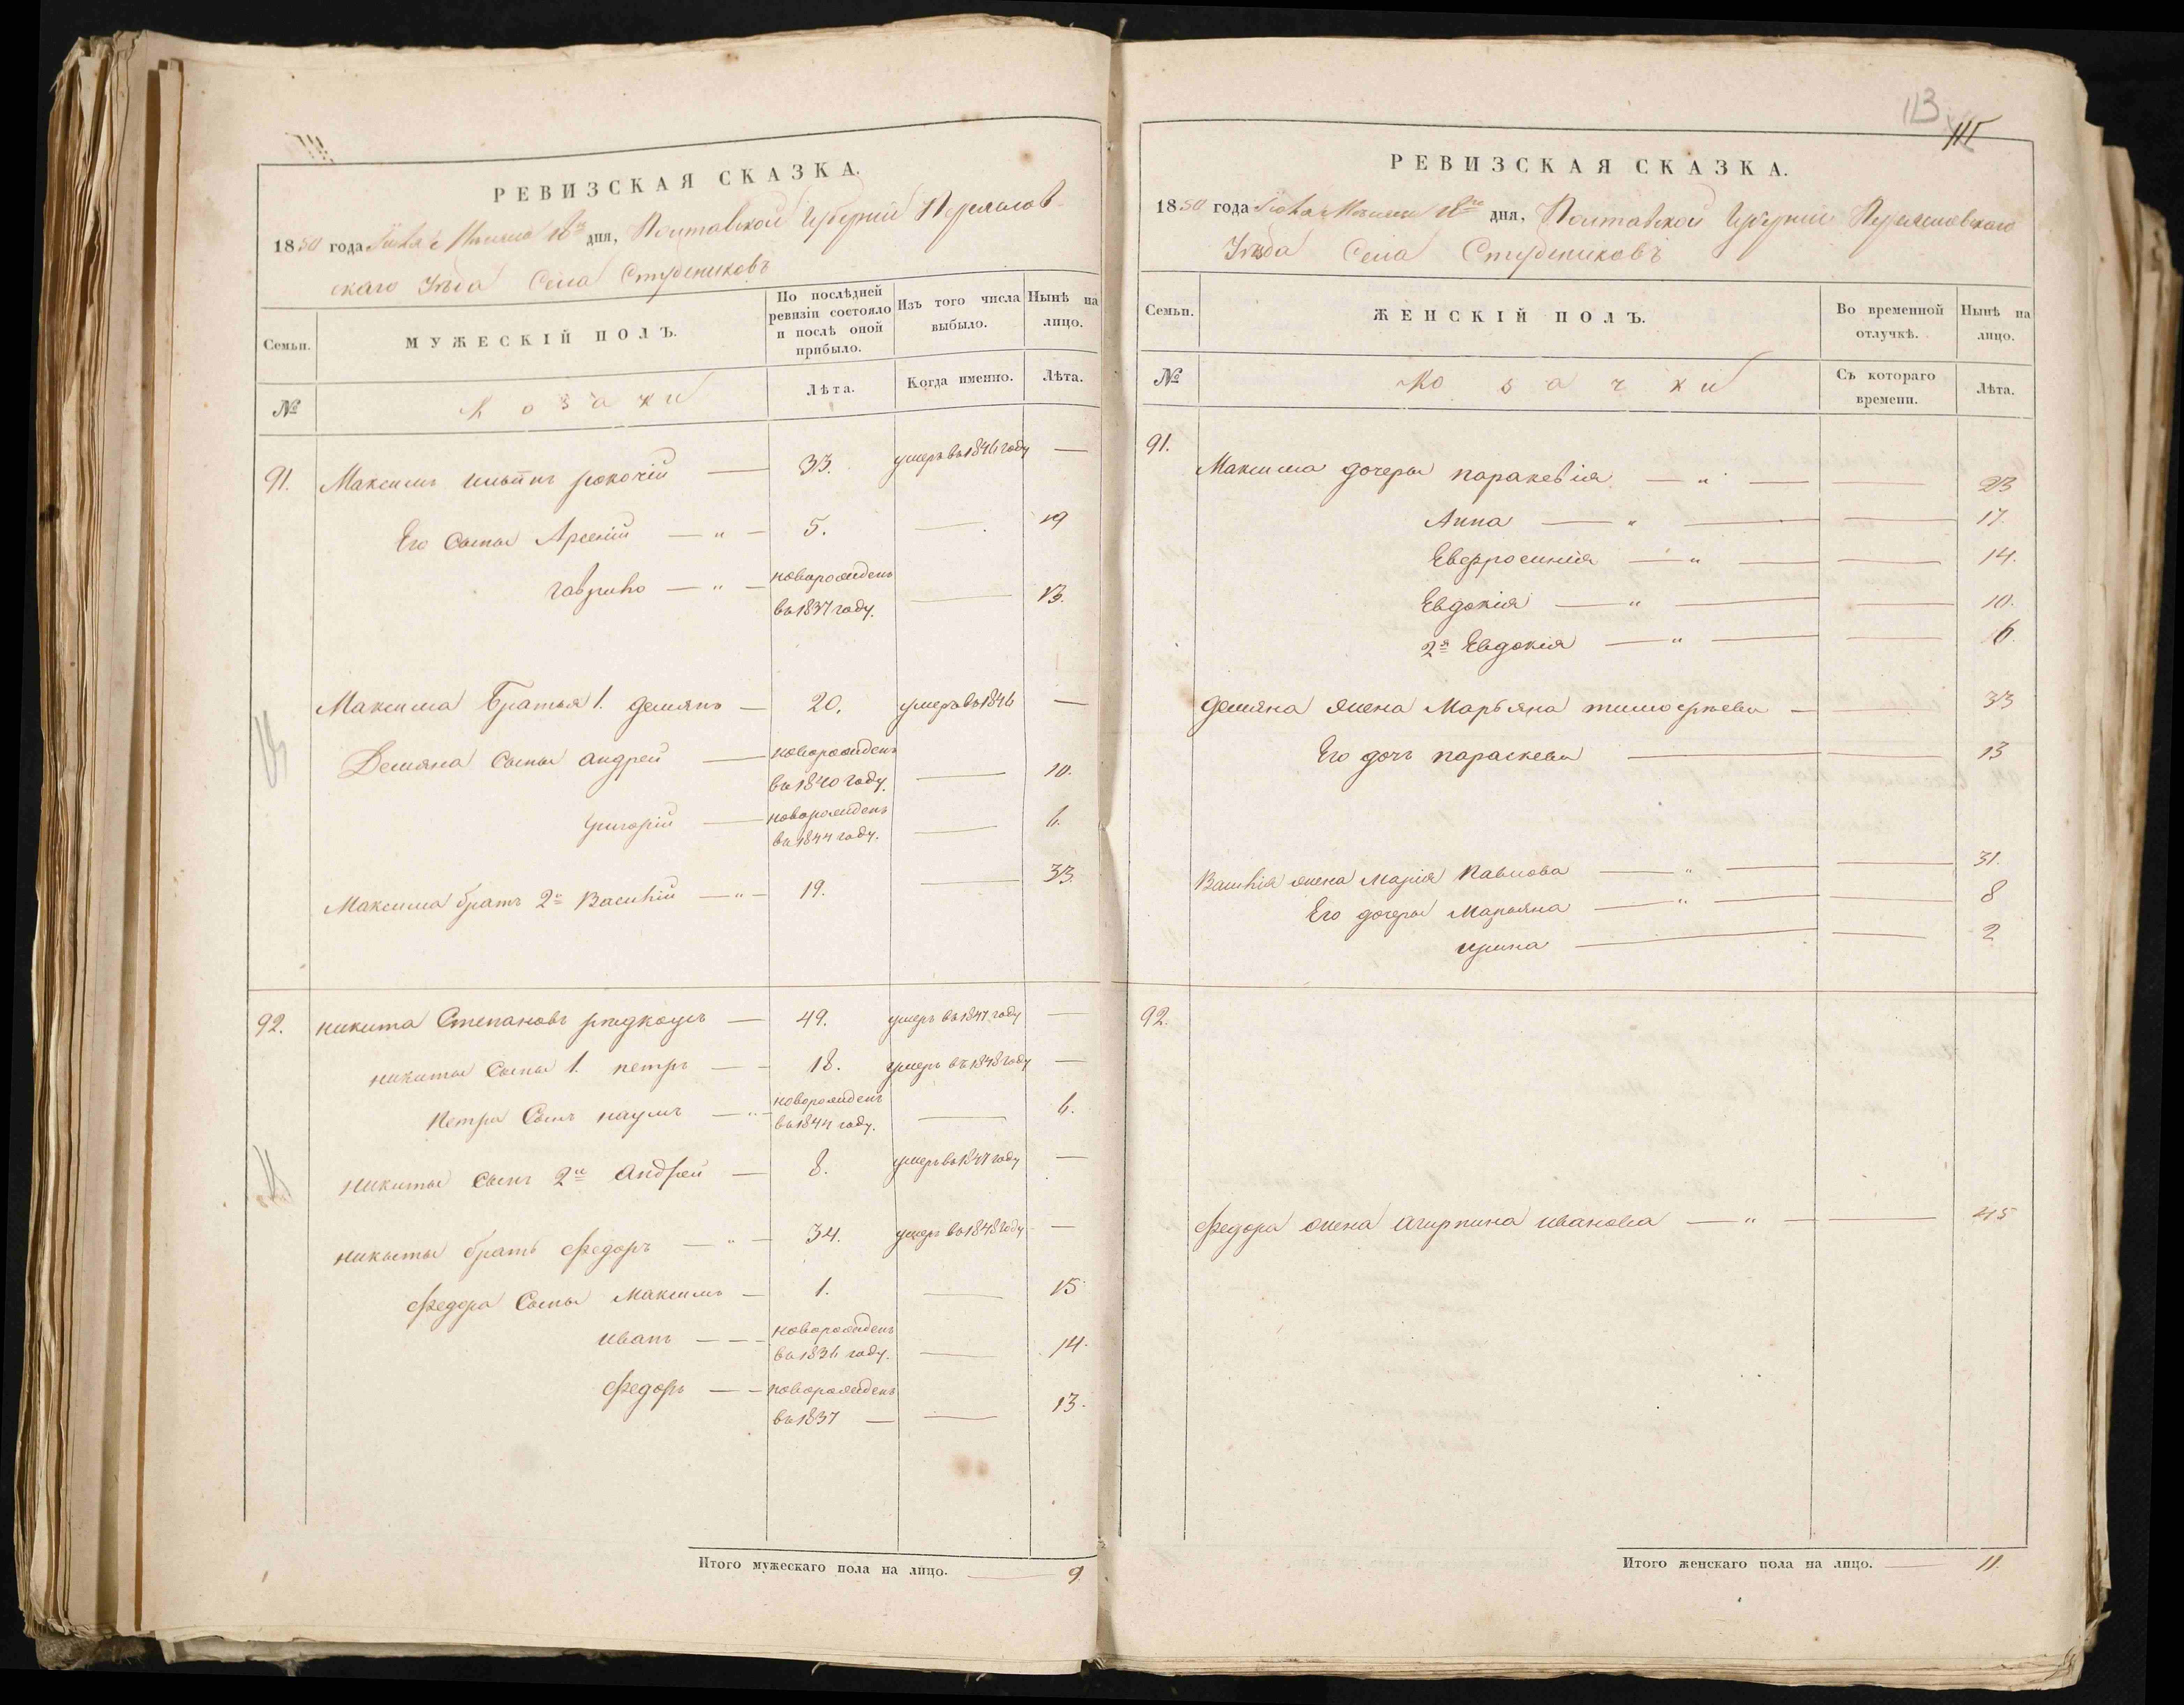 РЕВИЗСКАЯ СКАЗКА.
1850 года Іюля Мѣсяца 18го дня, Полтавской Губерніи Переяслов-
скаго Уѣзда Села Студениковъ
Семьи.
МУЖЕСКІЙ ПОЛЪ.
По послѣдней ревизіи состояло и послѣ оной прибыло.
Изъ того числа выбыло.
Нынѣ на лицо.
№
Козаки
Лѣта.
Когда именно.
Лѣта.
91. Максимъ Ильинъ рокочій — 33. умеръ въ 1846 году —
Его Сыны Арсеній — " — 5. — 19
гаврило — " — новорожденъ въ 1837 году. — 13.
Максима Братья 1. демянъ — 20. умеръ въ 1846 —
Демяна Сыны андрей — новорожденъ въ 1840 году. — 10.
григорій — новорожденъ въ 1844 году. — 6.
Максима братъ 2й Василій — " — 19. — 33.
92. никита Степановъ — 49. умеръ въ 1847 году —
никиты Сыны 1. петръ — 18. умеръ въ 1848 году —
Петра Сынъ наумъ — " — новорожденъ въ 1844 году. — 6.
никиты Сынъ 2й андрей — 8. умеръ въ 1847 году —
никиты братъ федоръ — " — 34. умеръ въ 1848 году —
федора Сыны Максимъ — 1. — 15
иванъ — — новорожденъ въ 1836 году. — 14.
федоръ — — новорожденъ въ 1837 — — 13.
Итого мужескаго пола на лицо. — 9.
113
111
РЕВИЗСКАЯ СКАЗКА.
1850 года Іюля Мѣсяца 18го дня, Полтавской Губерніи Переясловскаго
Уѣзда Села Студениковъ
Семьи.
ЖЕНСКІЙ ПОЛЪ.
Во временной отлучкѣ.
Нынѣ на лицо.
№
Козачки
Съ котораго времени.
Лѣта.
91.
Максима дочеры паракевія — " — — 23
Анна — " — — 17.
Евфросинія — " — — 14.
Евдокія — " — — 10.
2я Евдокія — " — — 6.
демяна жена Марьяна тимофѣева — — 33
Его дочь параскева — — 13
Василія жена Марія Павлова — " — — 31.
Его дочеры Марьяна — " — — 8
ирина — — 2
92.
федора жена агирпина иванова — " — — 45
Итого женскаго пола на лицо. — 11.